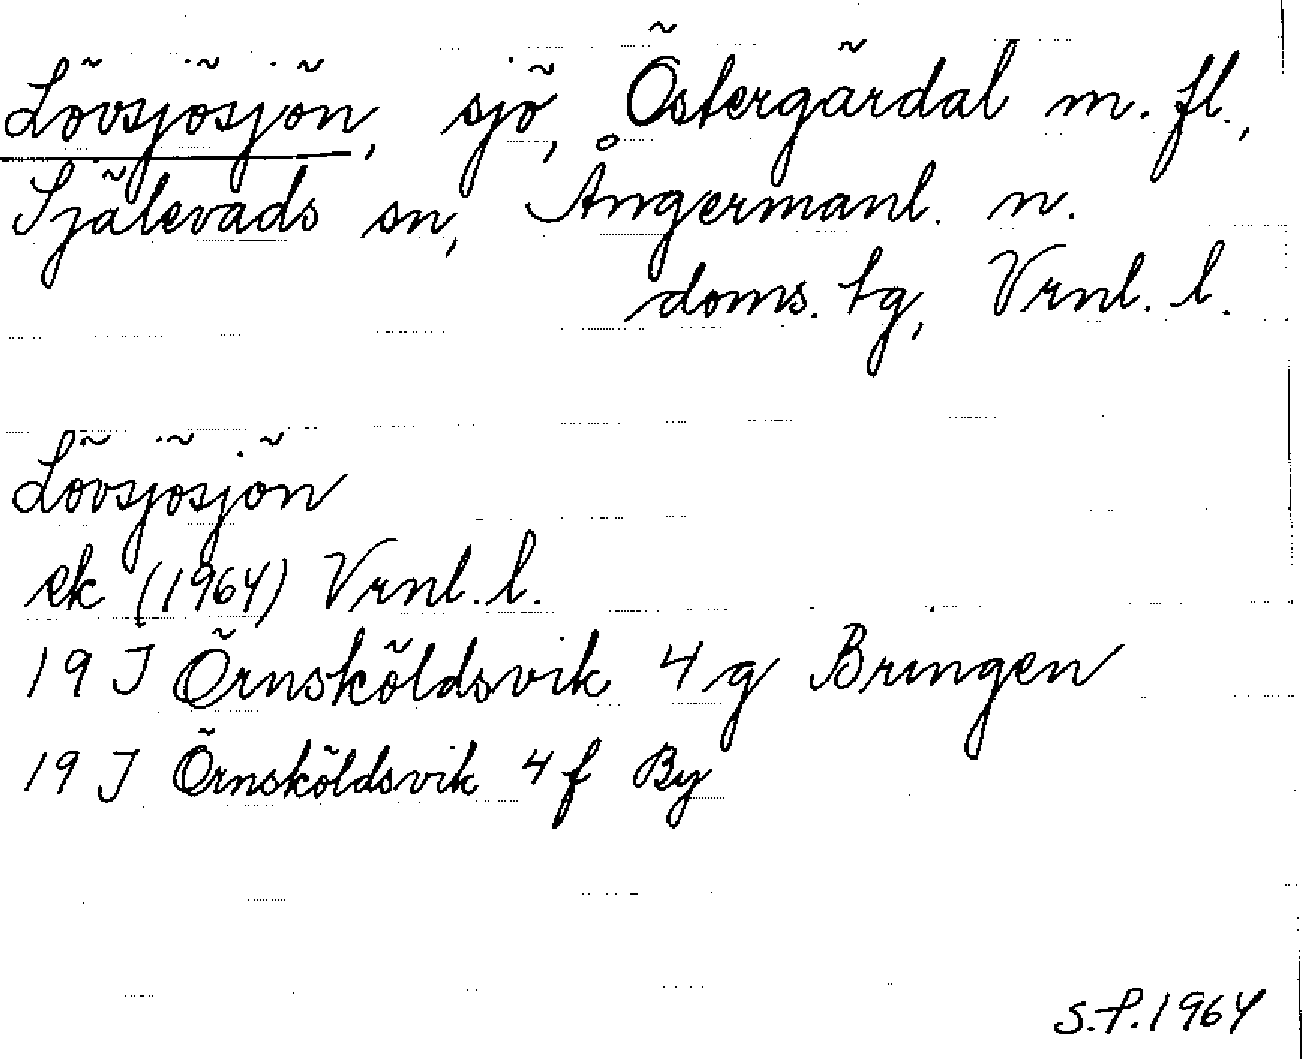 Lövsjösjön, sjö, Östergärdal m. fl.,
Själevads sn, Ångermanl. n.
doms. tg, Vrnl. l.
Lövsjösjön
ek (1964) Vrnl. l.
19 J Örnsköldsvik 4 g Bringen
19 J Örnsköldsvik 4 f By
S.F. 1964